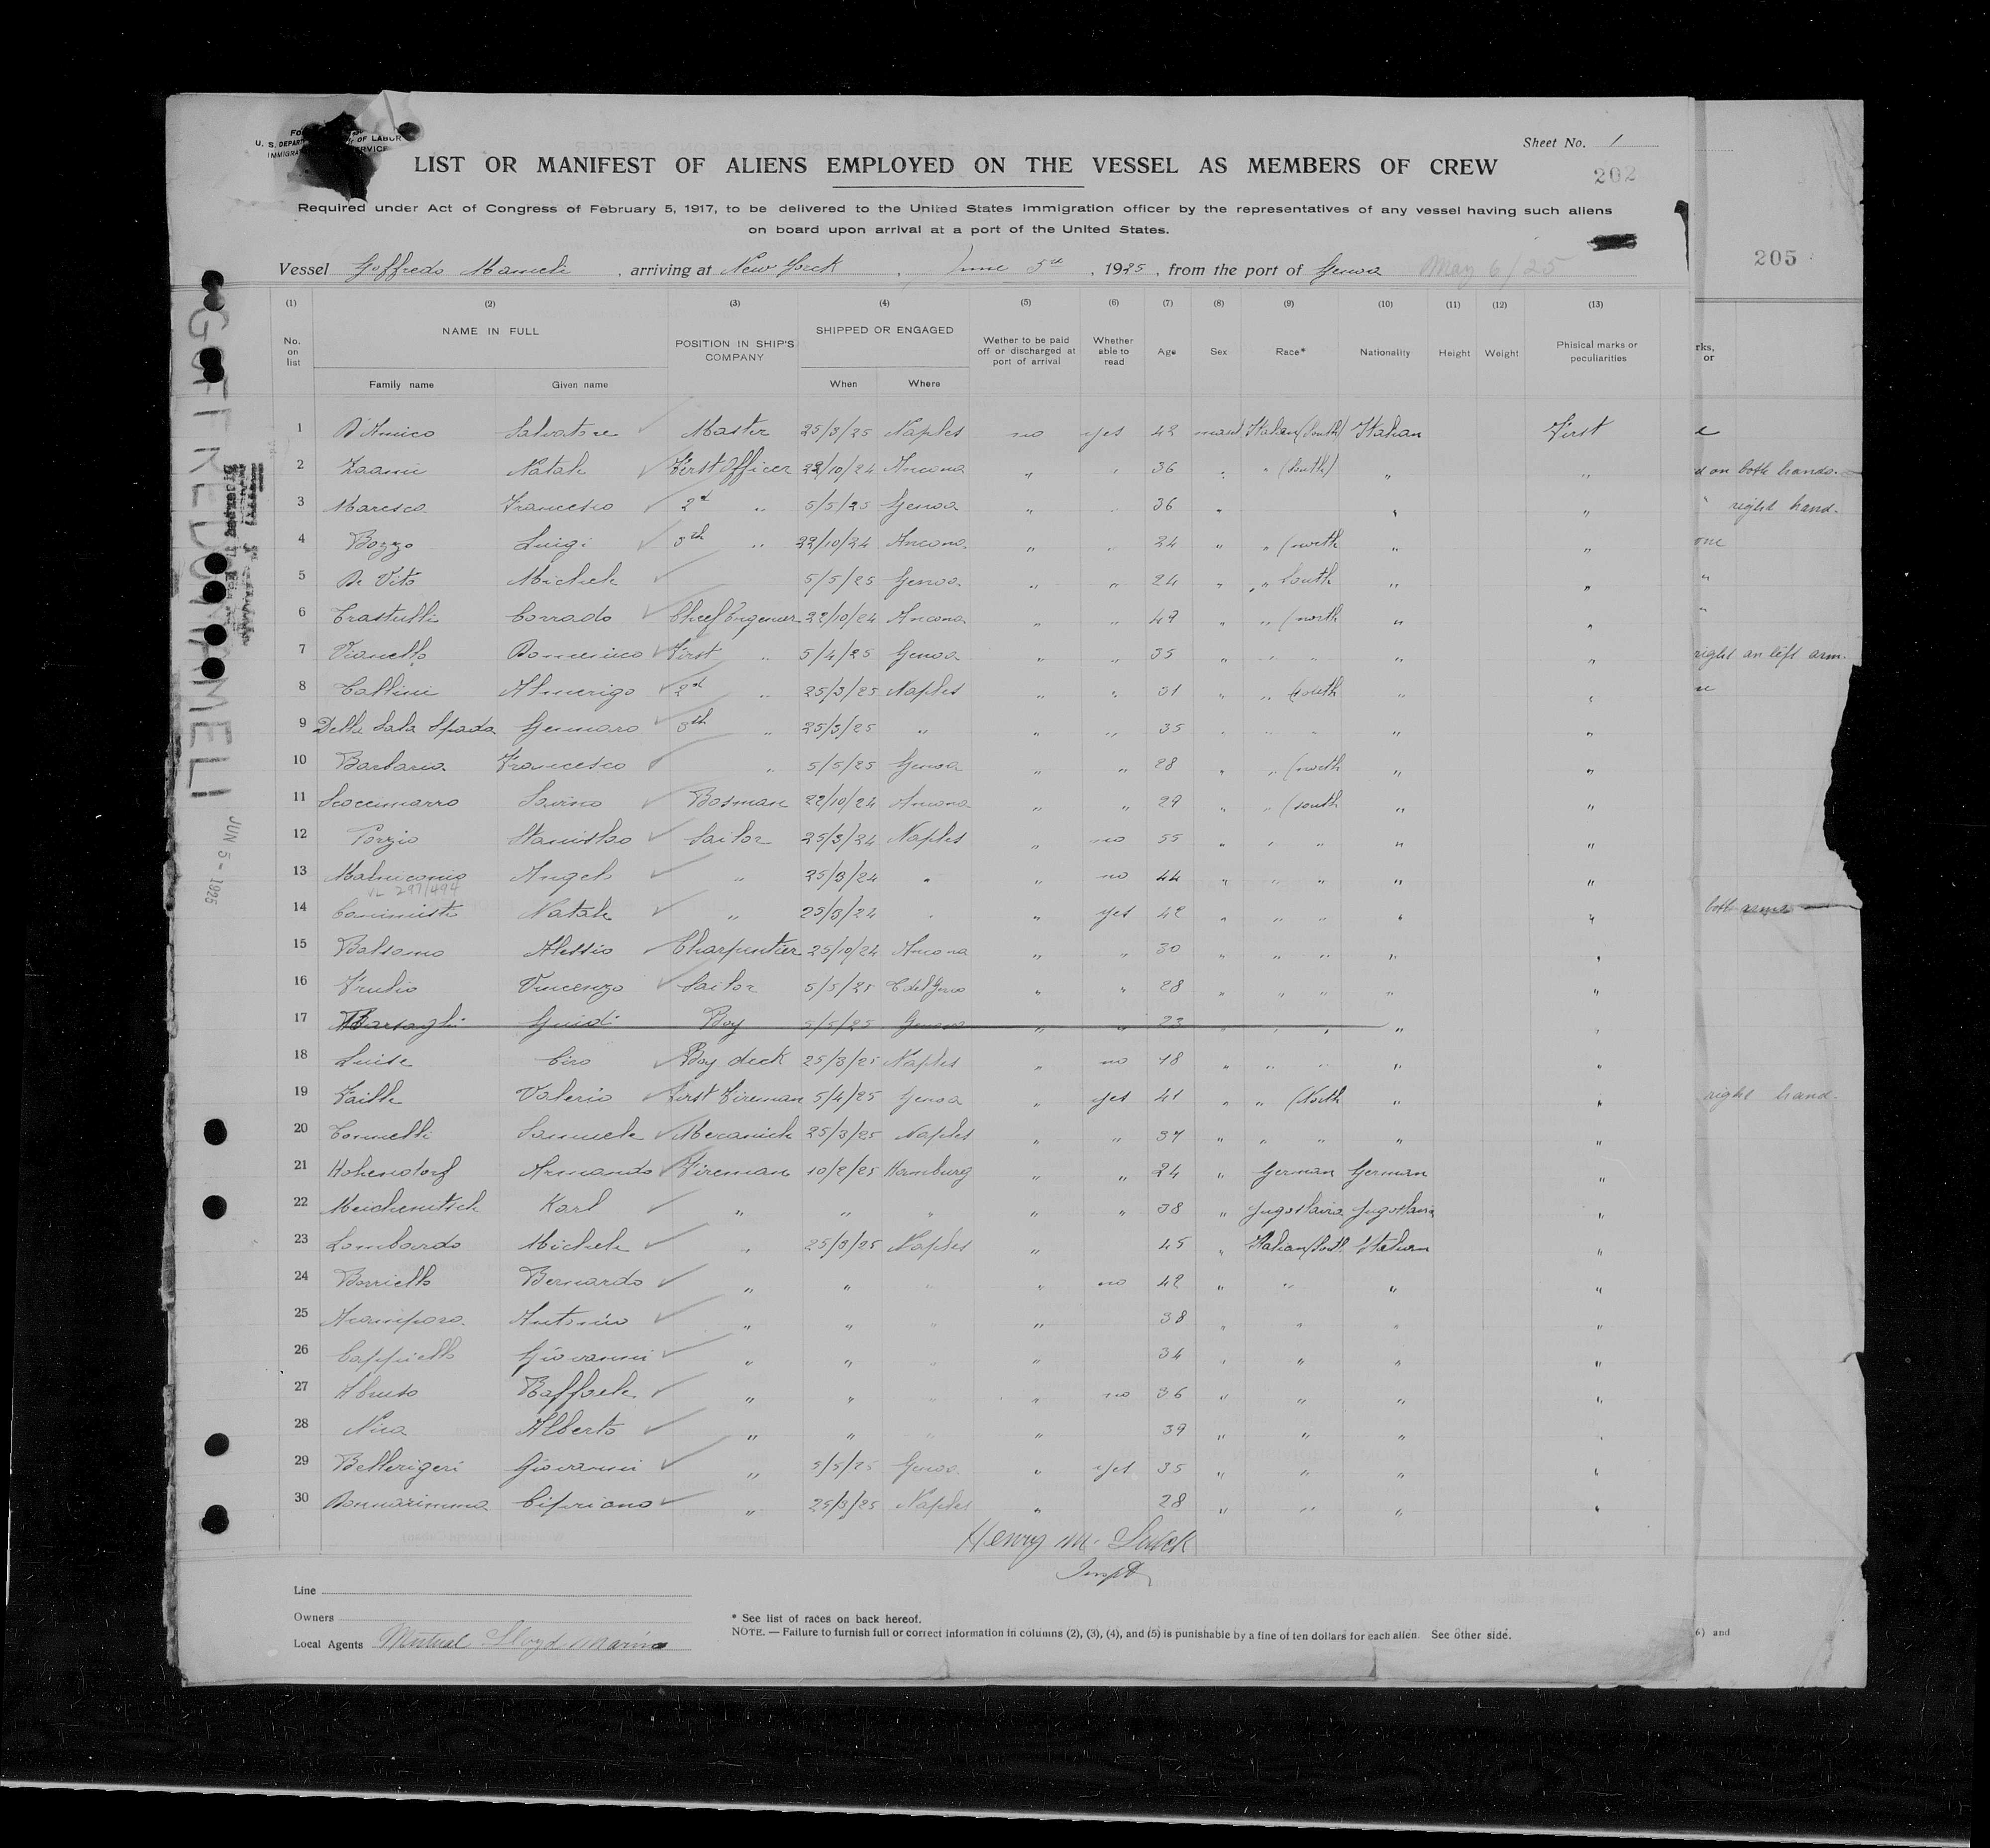 Sheet No. 1
U. S. DEPART OF LABOR
LIST OR MANIFEST OF ALIENS EMPLOYED ON THE VESSEL AS MEMBERS OF CREW
202
Required under Act of Congress of February 5, 1917, to be delivered to the United States immigration officer by the representatives of any vessel having such aliens
on board upon arrival at a port of the United States.
Vessel Goffredo Mameli , arriving at New York , June 5th , 1925 , from the port of Genoa May 6/25
205
(1) (2) (3) (4) (5) (6) (7) (8) (9) (10) (11) (12) (13)
No. on list NAME IN FULL POSITION IN SHIP'S COMPANY SHIPPED OR ENGAGED Wether to be paid off or discharged at port of arrival Whether able to read Age Sex Race* Nationality Height Weight Phisical marks or peculiarities
Family name Given name When Where
1 D'Amico Salvatore Master 25/3/25 Naples no yes 42 Italian (South) Italian First
2 Natale First Officer 22/10/24 Ancona " " 36 " " (South) " "
3 Maresca Francesco 2d " 5/5/25 Genoa " " 36 " " "
4 Bozzo Luigi 3th " 22/10/24 Ancona " " 24 " " (north " "
5 De Vito Michele 5/5/25 Genoa " " 24 " " South " "
6 Trastulli Corrado Cheef Engenier 22/10/24 Ancona " " 49 " " (north " "
7 Vianello Domenico First " 5/4/25 Genoa " " 35 " " " " "
8 Almerigo 2d " 25/3/25 Naples " " 31 " " (south " "
9 Della Sala Spada Gennaro 3th " 25/3/25 " " " 35 " " " " "
10 Barbaria Francesco " 5/5/25 Genoa " " 28 " " (north " "
11 Scoccimarro Savino Bosman 22/10/24 Ancona " " 29 " " (south " "
12 Porzio Stanislao Sailor 25/3/24 Naples " no 55 " " " " "
13 Malinconico Angelo " 25/3/24 " " no 44 " " " " "
VL 297/494
14 Natale " 25/3/24 " " yes 42 " " " " "
15 Balsamo Alessio Charpentier 25/10/24 Ancona " " 30 " " " " "
16 Vincenzo Sailor 5/5/25 " " 28 " " " " "
17 Guidi Boy 5/5/25 Genoa " " 23 " " " " "
18 Luise Ciro Boy deck 25/3/25 Naples " no 18 " " " " "
19 Faille Valerio First Fireman 5/4/25 Genoa " yes 41 " " (North " "
20 Samuele Mecanich 25/3/25 Naples " " 37 " " " " "
21 Hohendorf Armando Fireman 10/2/25 Hamburg " " 24 " German German "
22 Karl " " " " " 38 " Jugoslavia Jugoslavia "
23 Lombardo Michele " 25/3/25 Naples " 45 " Italian (South Italian "
24 Borriello Bernardo " " " " no 42 " " " "
25 Antonio " " " " 38 " " " "
26 Cappiello Giovanni " " " " 34 " " " "
27 Raffaele " " " " no 36 " " " "
28 Alberto " " " " 39 " " " "
29 Bellerigeri Giovanni " 5/5/25 Genoa " yes 35 " " " "
30 Donnarumma Cipriano " 25/3/25 Naples " 28 " " " "
Henry M.
Inspt
Line
Owners
Local Agents Mutual Lloyd Marina
* See list of races on back hereof.
NOTE. — Failure to furnish full or correct information in columns (2), (3), (4), and (5) is punishable by a fine of ten dollars for each alien. See other side.
GOFFREDO MAMELI
JUN 5 - 1925
rks, or
on both hands.
" right hand.
right an left arm.
both arms
right hand.
6) and